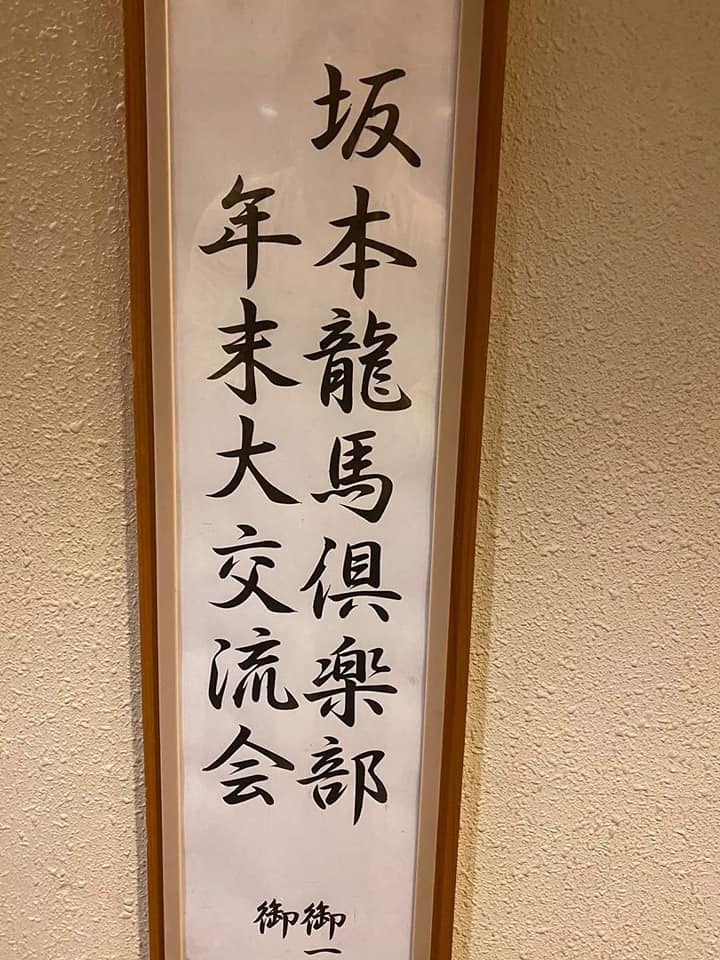 坂本龍馬倶楽部
年末大交流会
御一
御